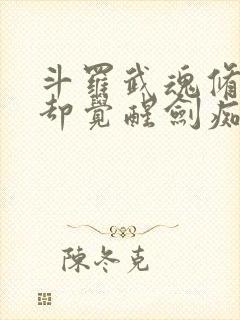 斗羅武魂脩
却覺醒劍痴
陳冬克